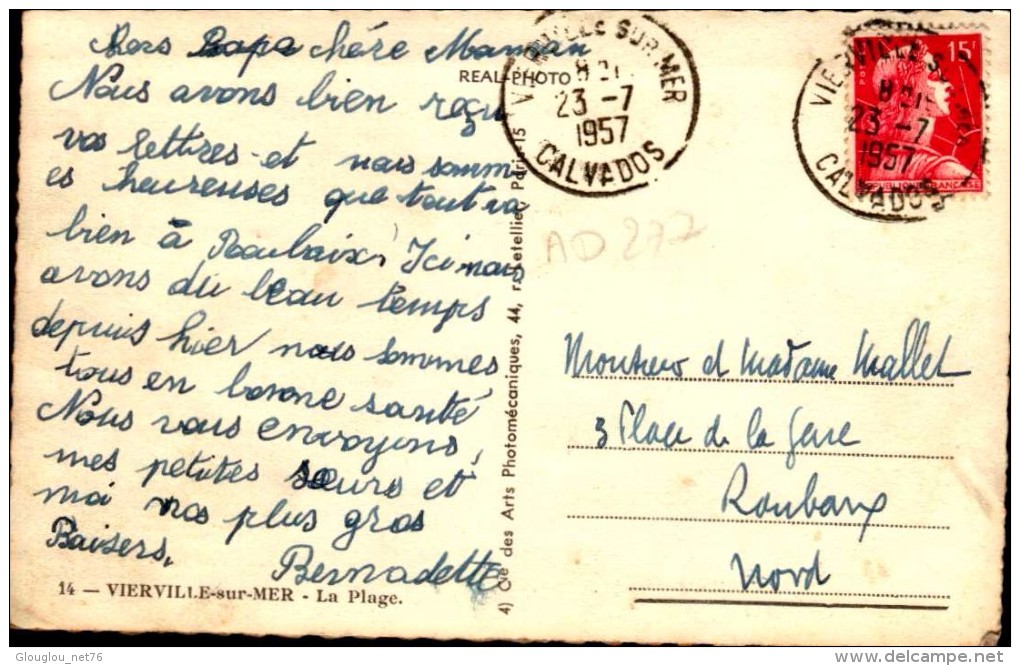 chers Papa chère Maman
Nous avons bien reçu
vos lettres et nous somm
es heureuses que tout va
bien à Roubaix, Ici nous
avons du beau temps
depuis hier nous sommes
tous en bonne santé
Nous vous envoyons,
mes petites sœurs et
moi nos plus gros
Baisers,
Bernadette
14 — VIERVILLE-sur-MER - La Plage.
REAL-PHOTO
4) Cie des Arts Photomécaniques, 44, r. Letellier, Paris-15
VIERVILLE SUR MER
23 -7
1957
CALVADOS
VIERVILLE SUR MER
23 -7
1957
CALVADOS
15F
REPUBLIQUE FRANCAISE
AD 277
Monsieur et Madame Mallet
3 Place de la Gare
Roubaix
Nord
Glouglou_net76